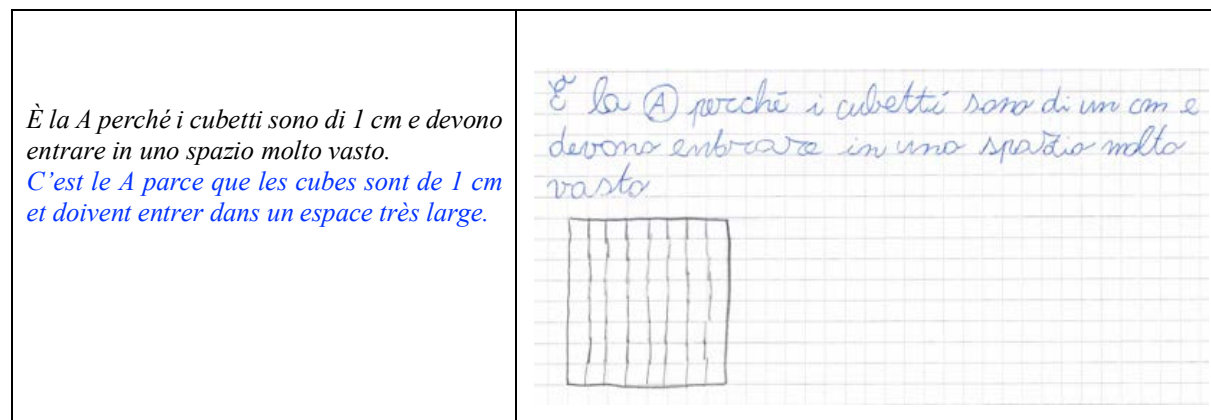 È la A perché i cubetti sono di 1 cm e devono
entrare in uno spazio molto vasto.
C’est le A parce que les cubes sont de 1 cm
et doivent entrer dans un espace très large.
È la A perché i cubetti sono di un cm e
devono entrare in uno spazio molto
vasto